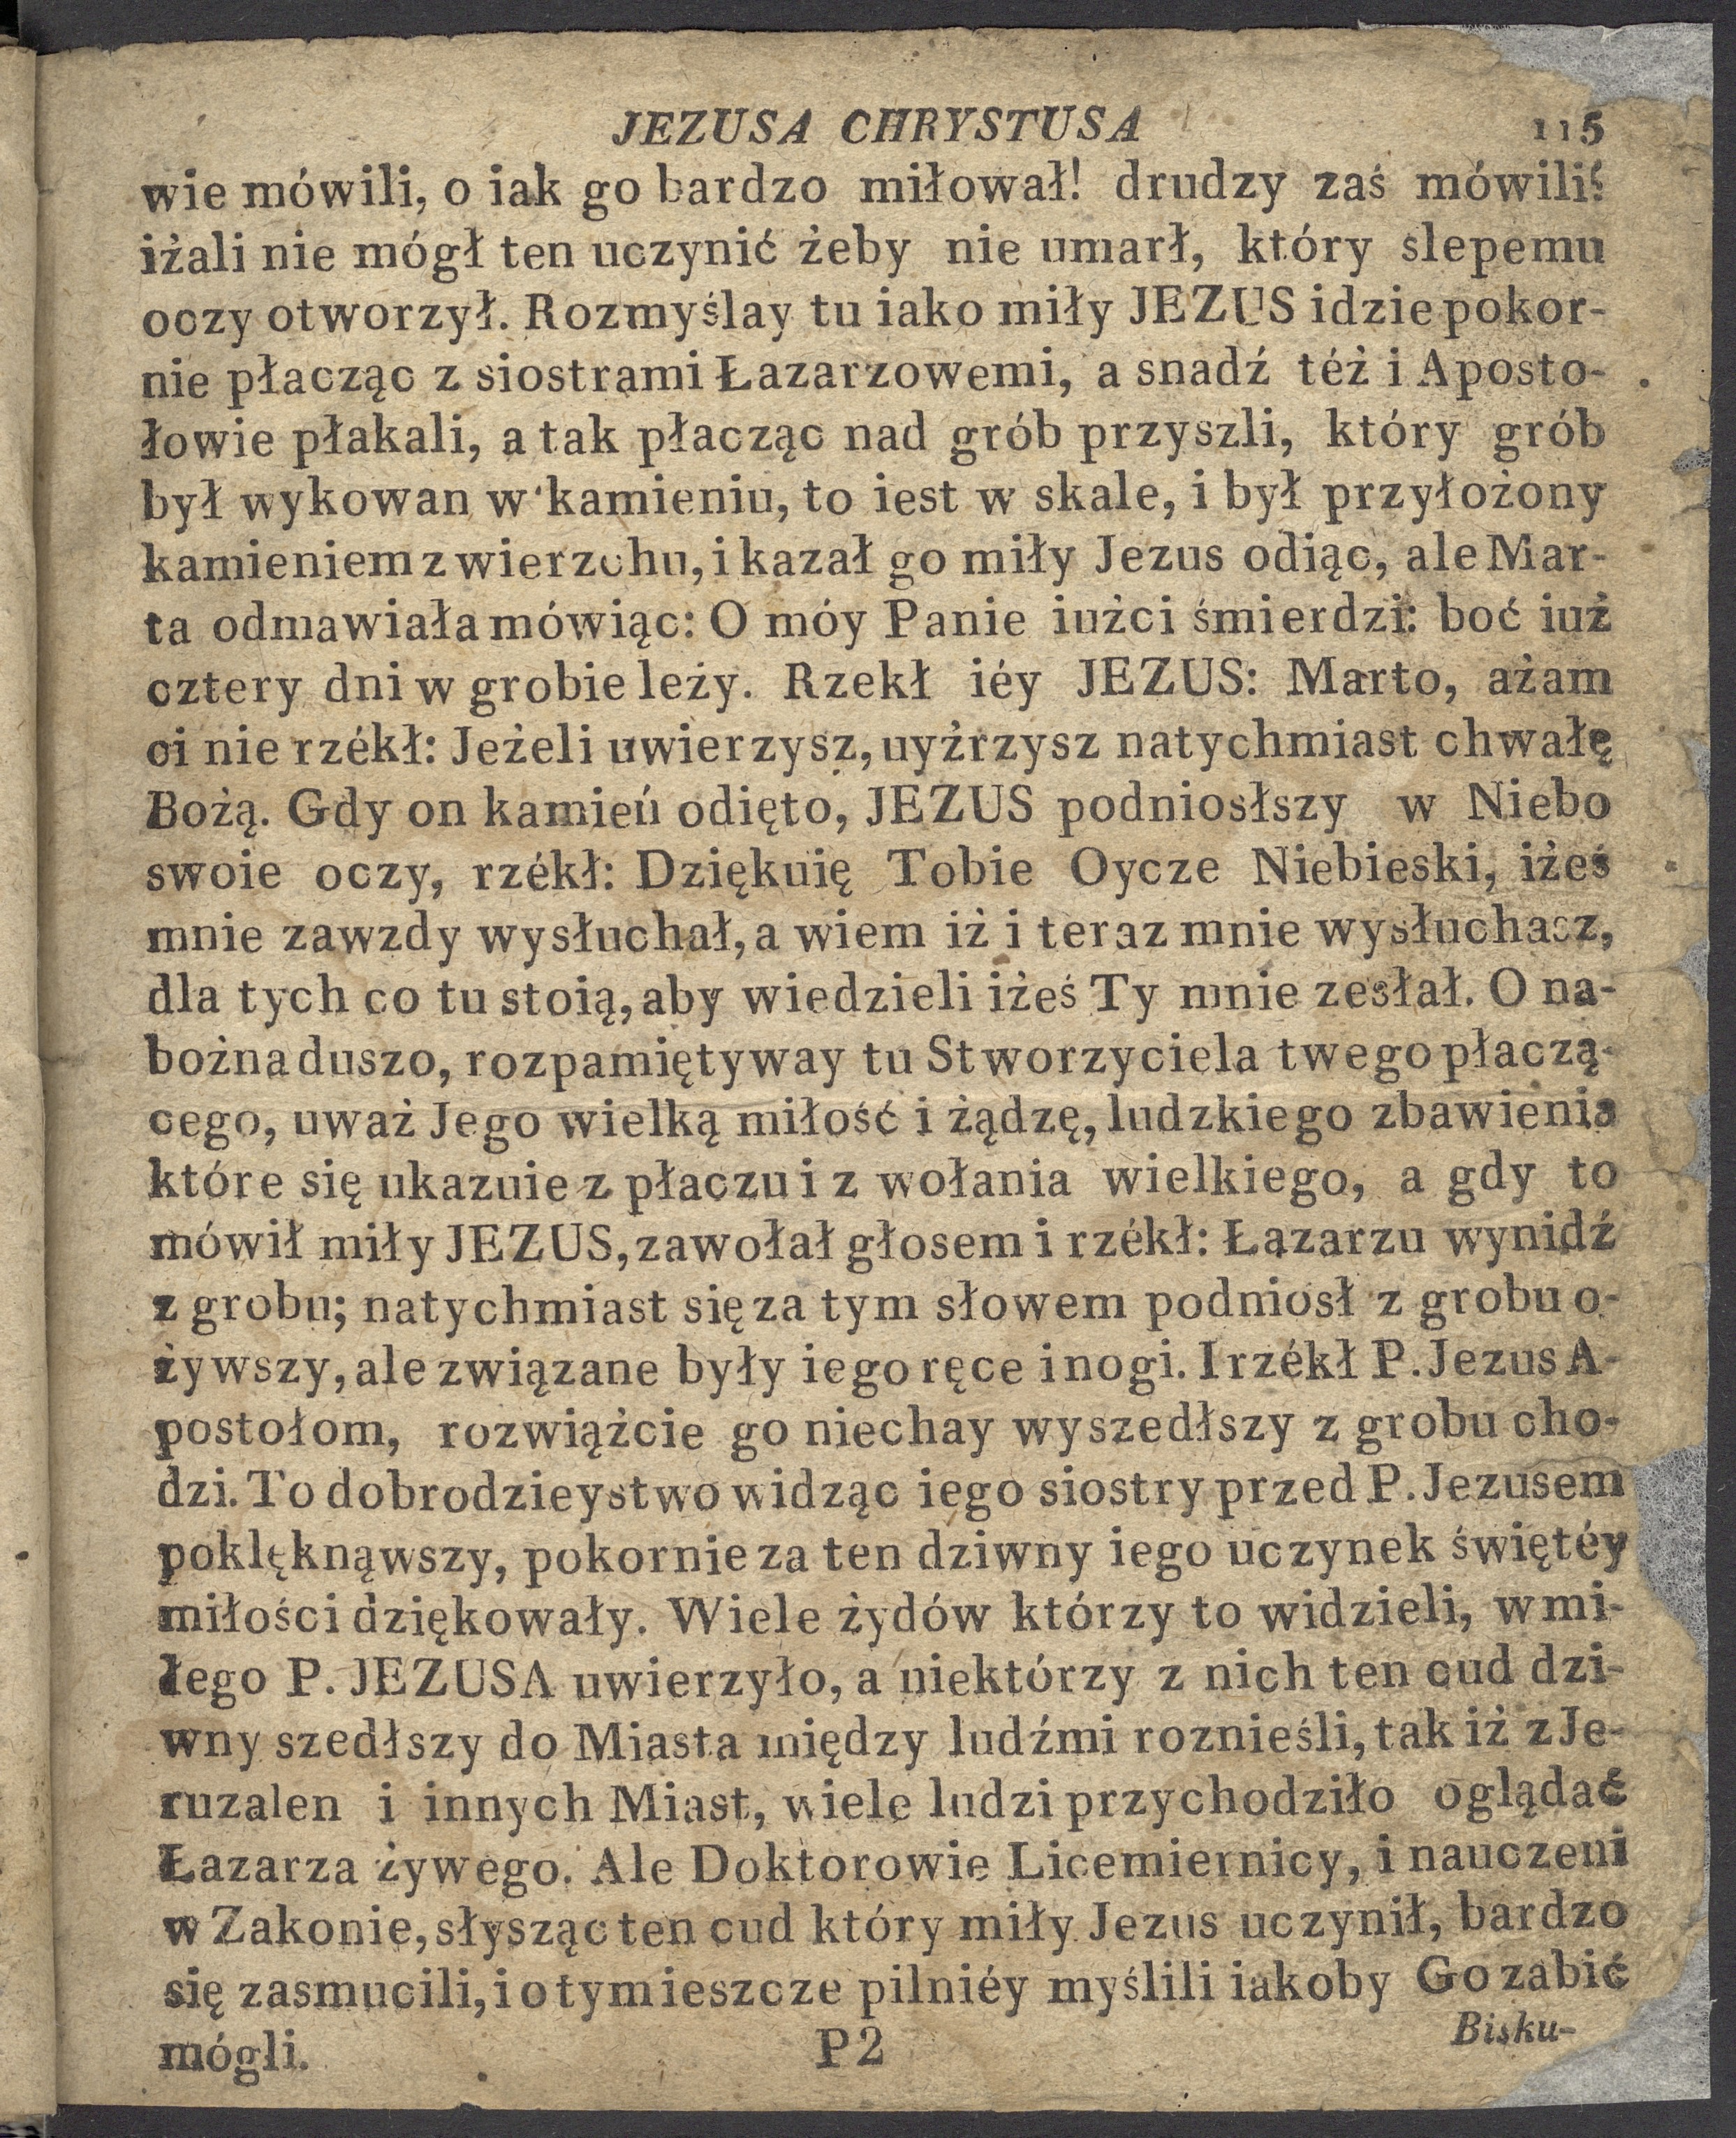 JEZUSA CHRYSTUSA 115
wie mówili, o iak go bardzo miłował! drudzy zaś mówili:
iżali nie mógł ten uczynić żeby nie umarł, który slepemu
oczy otworzył. Rozmyślay tu iako miły JEZUS idzie pokor-
nie płacząc z siostrami Łazarzowemi, a snadź téż i Aposto-
łowie płakali, a tak płacząc nad grób przyszli, który grób
był wykowan w kamieniu, to iest w skale, i był przyłożony
kamieniem z wierzchu, i kazał go miły Jezus odiąc, ale Mar-
ta odmawiała mówiąc: O móy Panie iużci śmierdzi: boć iuż
cztery dni w grobie leży. Rzekł iéy JEZUS: Marto, ażam
ci nie rzékł: Jeżeli uwierzysz, uyźrzysz natychmiast chwałę
Bożą. Gdy on kamień odięto, JEZUS podniosłszy w Niebo
swoie oczy, rzékł: Dziękuię Tobie Oycze Niebieski, iżeś
mnie zawzdy wysłuchał, a wiem iż i teraz mnie wysłuchasz,
dla tych co tu stoią, aby wiedzieli iżeś Ty mnie zesłał. O na-
bożna duszo, rozpamiętyway tu Stworzyciela twego płaczą-
cego, uważ Jego wielką miłość i żądzę, ludzkiego zbawienia
które się ukazuie z płaczu i z wołania wielkiego, a gdy to
mówił miły JEZUS, zawołał głosem i rzékł: Łazarzu wynidź
z grobu; natychmiast się za tym słowem podniosł z grobu o-
żywszy, ale związane były iego ręce i nogi. I rzékł P. Jezus A-
postołom, rozwiążcie go niechay wyszedłszy z grobu cho-
dzi. To dobrodzieystwo widząc iego siostry przed P. Jezusem
poklęknąwszy, pokornie za ten dziwny iego uczynek świętéy
miłości dziękowały. Wiele żydów którzy to widzieli, w mi-
łego P. JEZUSA uwierzyło, a niektórzy z nich ten cud dzi-
wny szedłszy do Miasta między ludźmi roznieśli, tak iż z Je-
ruzalen i innych Miast, wiele ludzi przychodziło oglądać
Łazarza żywego. Ale Doktorowie Licemiernicy, i nauczeni
w Zakonie, słysząc ten cud który miły Jezus uczynił, bardzo
się zasmucili, i o tym ieszcze pilniéy myślili iakoby Go zabić
mógli. P2 Bisku-